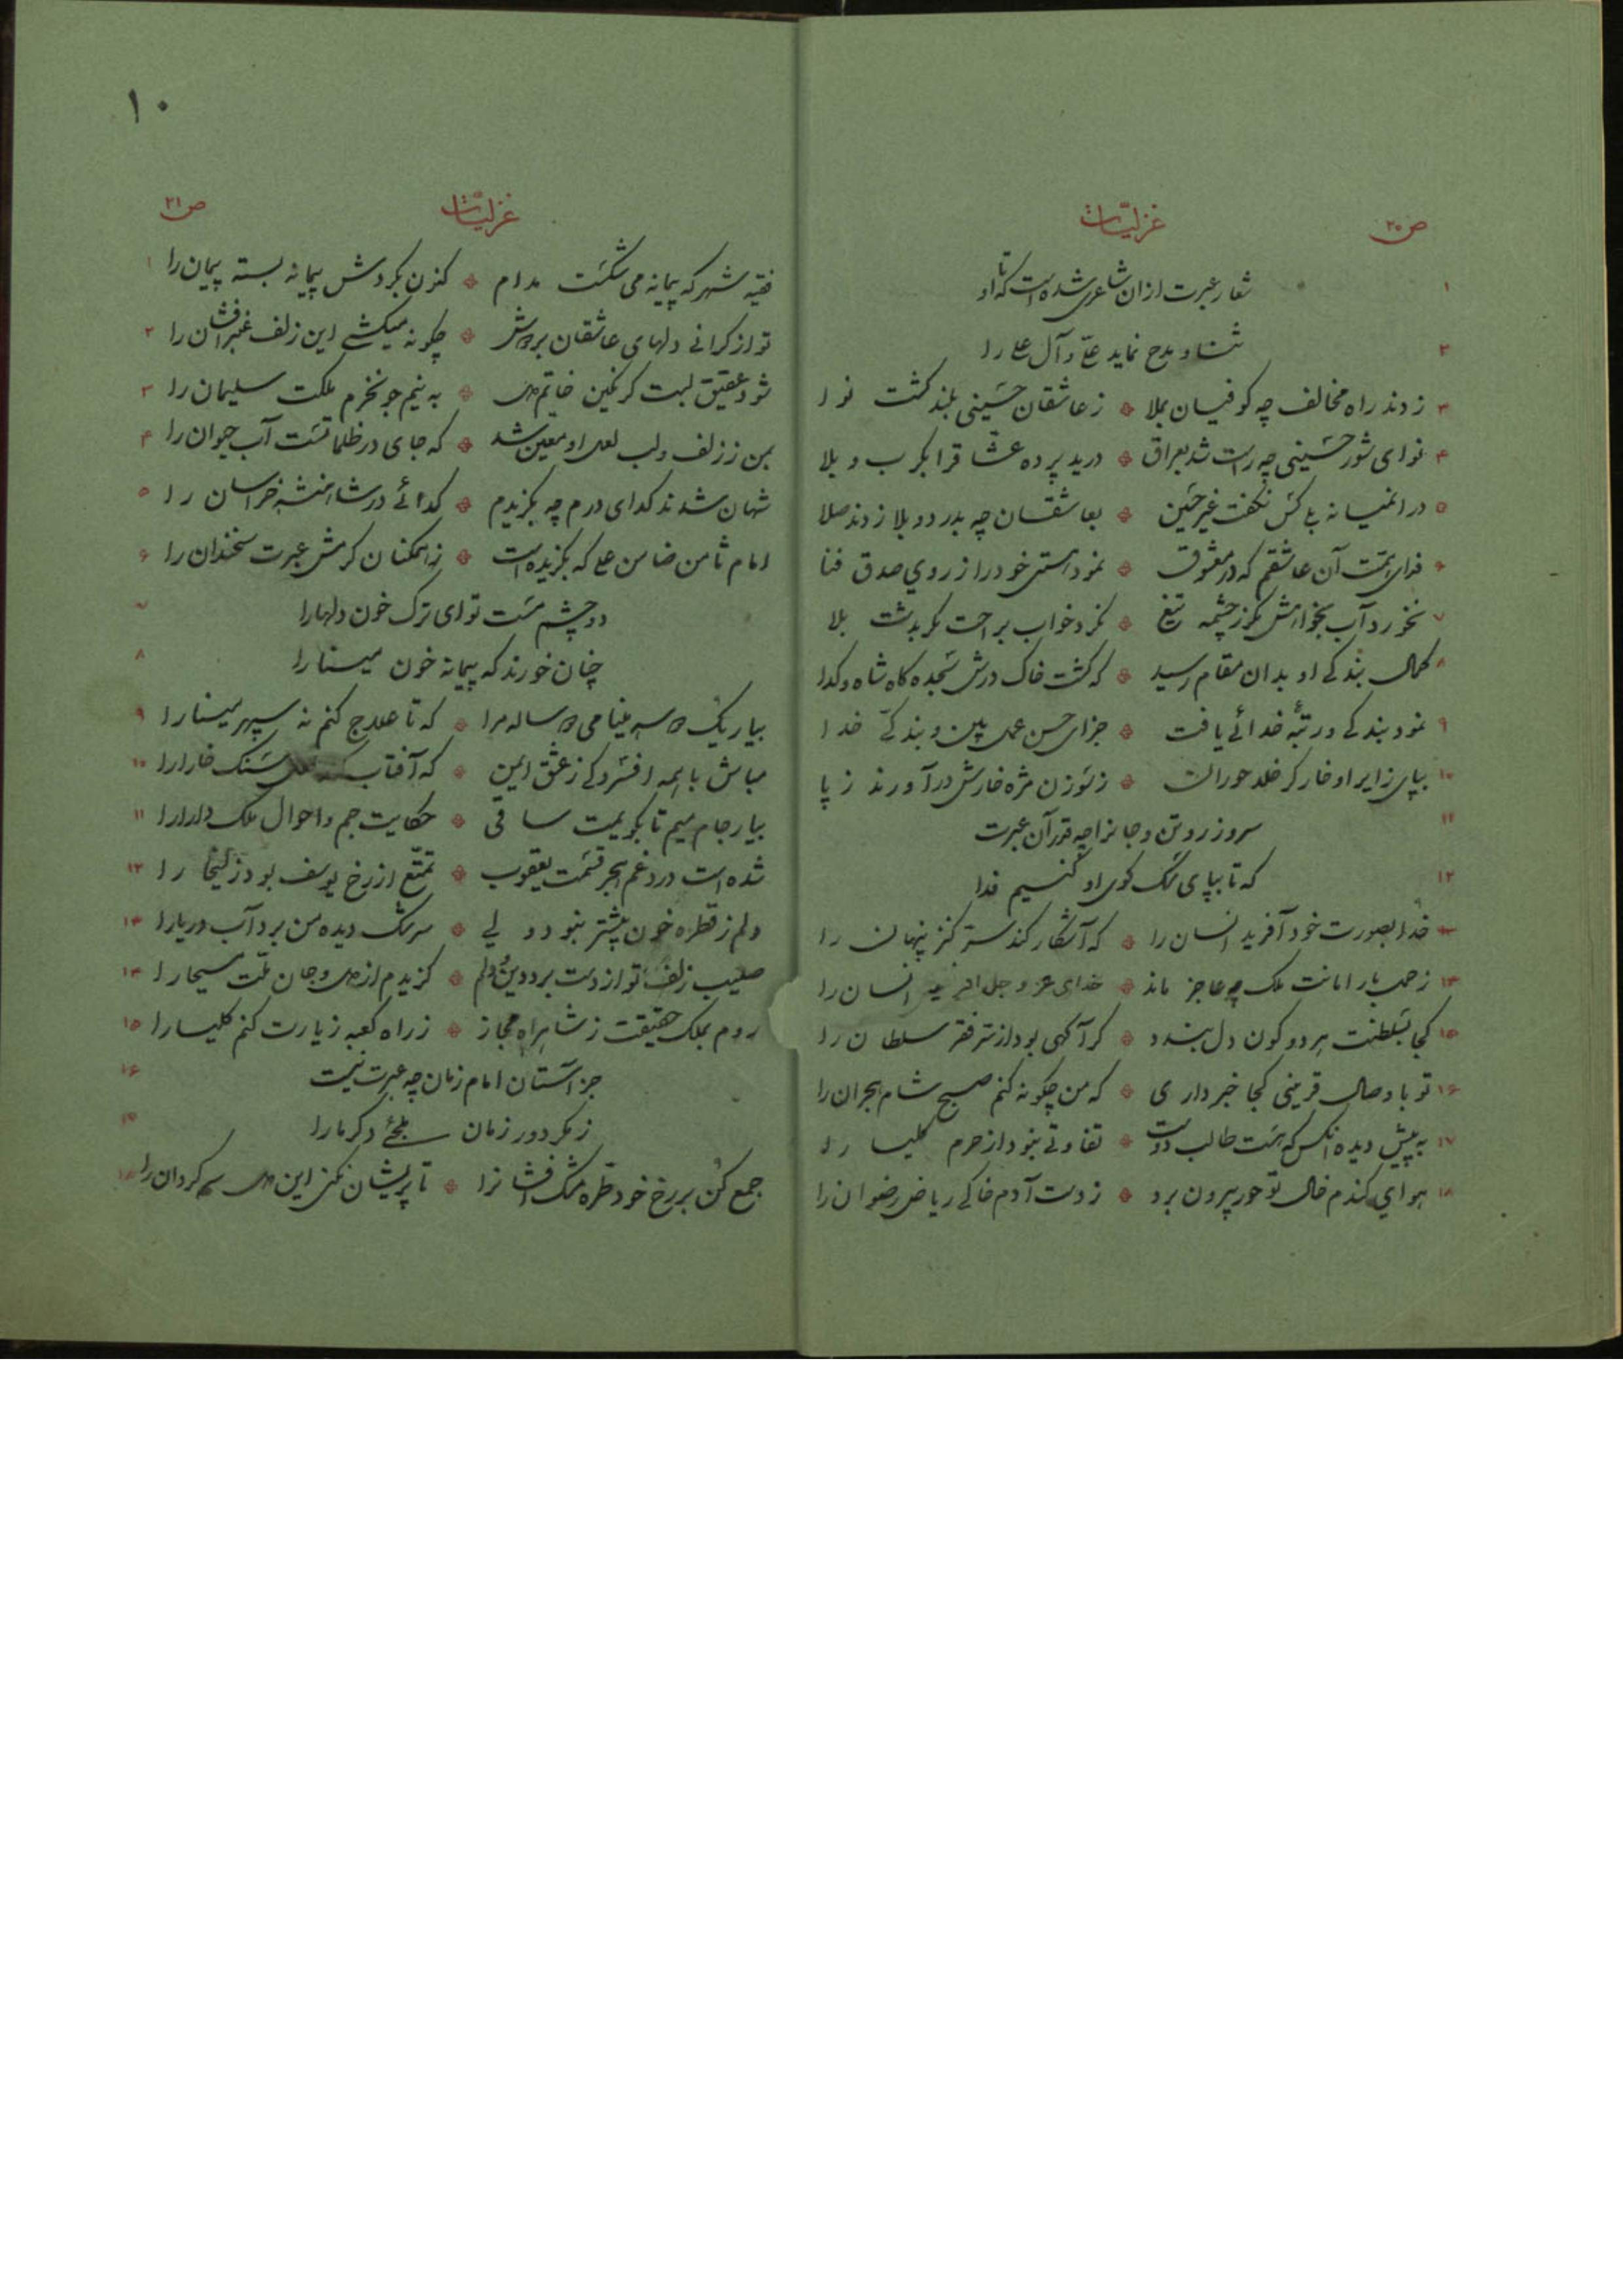 ۱۰
ص ۲۰
غزلیّات
۱ شعار عبرت از ان شاعری شده است که تا او
۲ ثنا و مدح نماید علیّ و آل علی را
۳ زدند راه مخالف چه کوفیان بملا ز عاشقان حسینی بلند گشت نوا
۴ نوای شور حسینی چه راست شد بعراق درید پرده عشاق را بکرب و بلا
۵ در انمیانه بیاکس نگفت غیر حسین بعاشقان چه بدرد و بلا زدند صلا
۶ فدای همّت آن عاشقم که در معشوق نمود هستی خود را ز روی صدق فنا
۷ نخورد آب بخواهش مگر ز چشمه تیغ نکرد خواب براحت مگر بدشت بلا
۸ کمال بندکی او بدان مقام رسید که گشت خاک درش سجده کاه شاه و کدا
۹ نمود بندکی و رتبهٔ خدائی یافت جزای حسن عمل بین و بندکیّ خدا
۱۰ بپای زایر او خار گر خلد حوران ز سوزن مژه خارش در آورند ز پا
۱۱ سر و زر و تن و جانرا چه قدر آن عبرت
۱۲ که تا بپای سک کوی او کنیم فدا
۱۳ خدا بصورت خود آفرید انسان را که آشکار کند ستر کنز پنهان را
۱۴ ز حمل بار امانت ملک چه عاجز ماند خدای عز و جل افرید انسان را
۱۵ کجا بسلطنت هر دو کون دل بندد گر آکهی بود از ستر فقر سلطان را
۱۶ تو با وصال قرینی کجا خبر داری که من چکونه کنم صبح شام هجران را
۱۷ به پیش دیده انکس که هست طالب دوست تفاوتی نبود از حرم کلیسا را
۱۸ هوای کندم خال تو حور بیرون برد ز دست آدم خاکی ریاض رضوان را
ص ۲۱
غزلیّات
۱ فقیه شهر که پیمانه می شکست مدام کنون بکردش پیمانه بسته پیمان را
۲ تو از کرانی دلهای عاشقان بر دوش چکونه میکشی این زلف عنبرافشان را
۳ شود عقیق لبت گر نکین خاتم دل به نیم جو نخرم ملکت سلیمان را
۴ بمن ز زلف و لب لعل او معین شد که جای در ظلماتست آب حیوان را
۵ شهان شدند کدای درم چه بکزیدم کدائی در شاهنشه خراسان را
۶ امام ثامن ضامن علی که بکزیده است ز همکنان کرمش عبرت سخندان را
۷ دو چشم مست تو ای ترک خون دلها را
۸ چنان خورند که پیمانه خون مینا را
۹ بیار یک دو سه مینا می دو ساله مرا که تا علاج کنم نه سپهر مینا را
۱۰ مباش با همه افسردکی ز عشق ایمن که آفتاب کند لعل سنک خارا را
۱۱ بیار جام میم تا بکویمت ساقی حکایت جم و احوال ملک دارا را
۱۲ شده است درد و غم هجر قسمت یعقوب تمتّع از رخ یوسف بود زلیخا را
۱۳ دلم ز قطره خون بیشتر نبود ولی سرشک دیده من برد آب دریا را
۱۴ صلیب زلف تو از دست برد دین و دلم کزیدم از دل و جان ملّت مسیحا را
۱۵ روم بملک حقیقت ز شاهراه مجاز ز راه کعبه زیارت کنم کلیسا را
۱۶ جز آستان امام زمان چه عبرت نیست
۱۷ ز مکر دور زمان ملجئی دکر ما را
۱۸ جمع کن بر رخ خود طره مشک افشانرا تا پریشان نکنی این دل سرکردان را